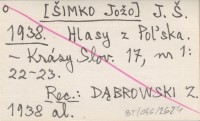 [ŠIMKO Jožo] J. Š.
1938. Hlasy z Poľska.
– Krásy Slov. 17, nr 1:
22-23.
Rec.: DĄBROWSKI Z.
1938 al.